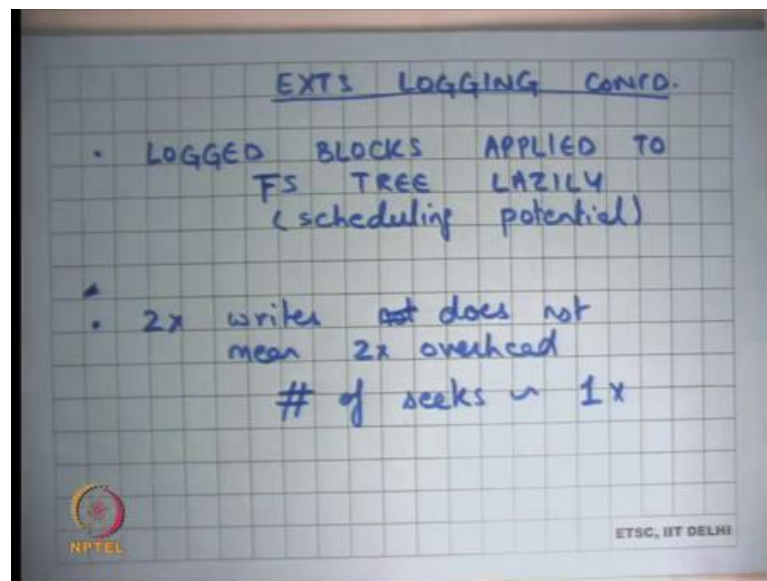 EXT3 LOGGING CONTD.
• LOGGED BLOCKS APPLIED TO
FS TREE LAZILY
(scheduling potential)
• 2x writes does not
mean 2x overhead
# of seeks ~ 1x
NPTEL
ETSC, IIT DELHI